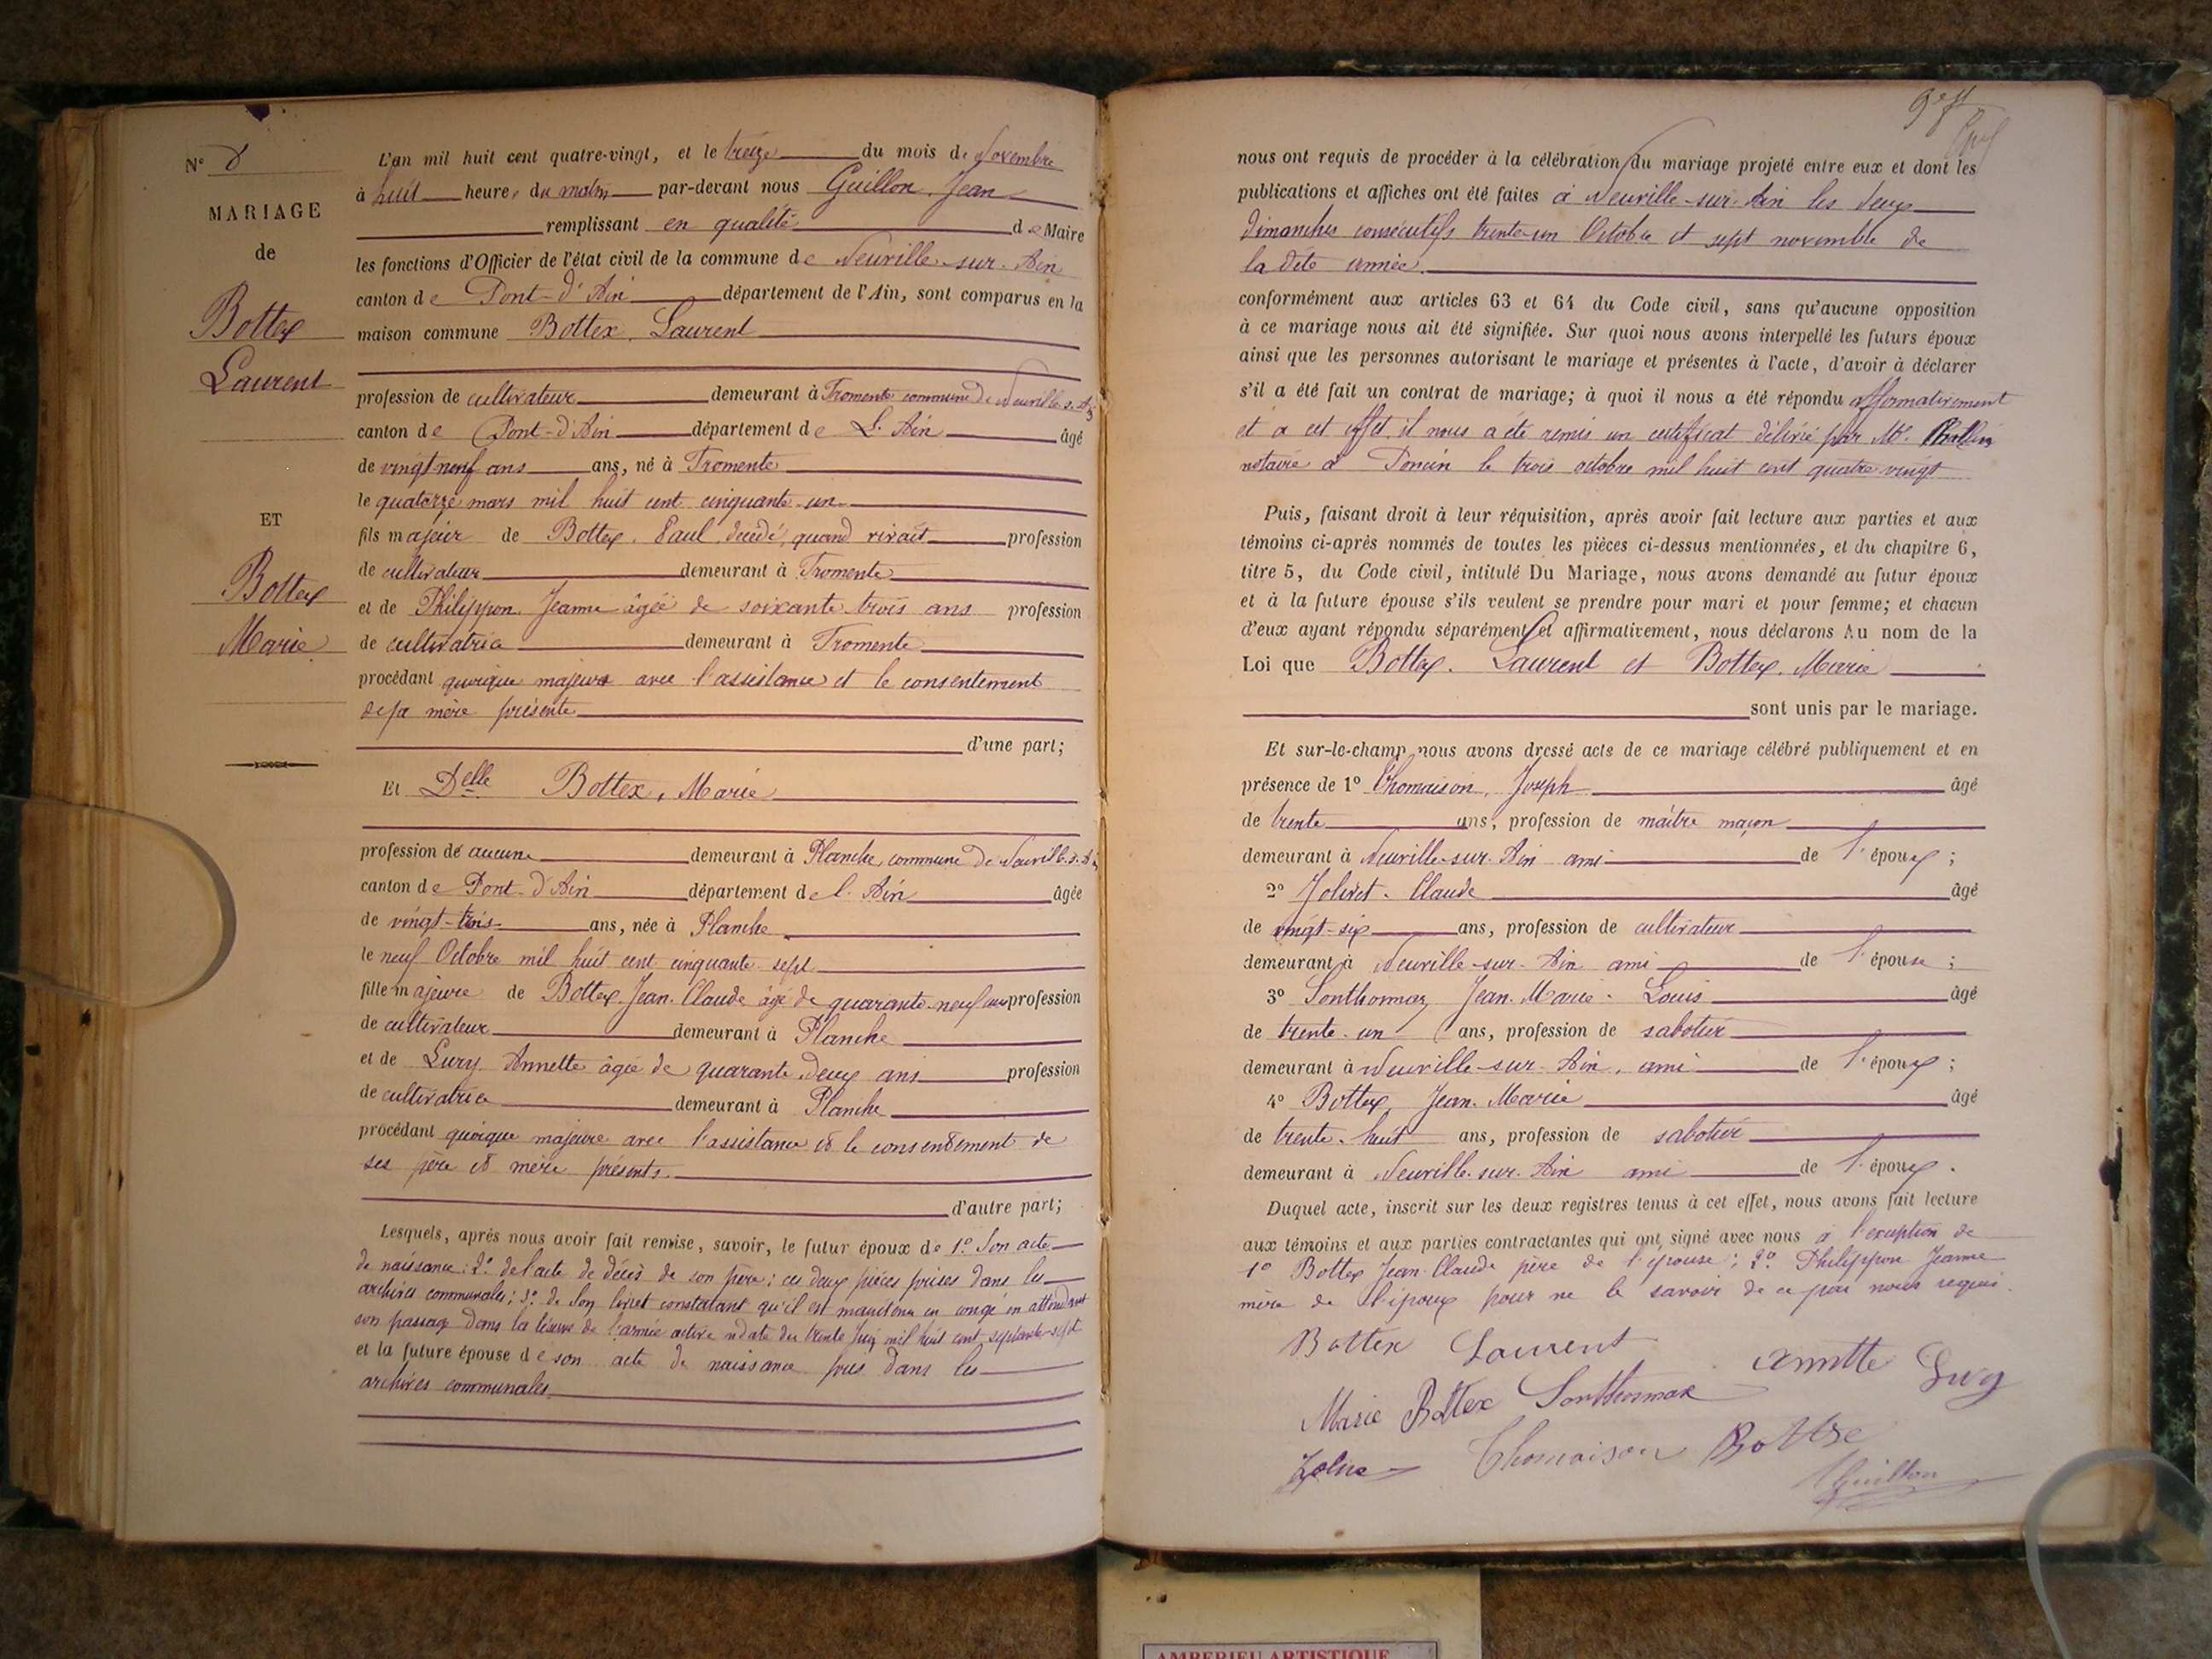 N° 8
MARIAGE
de
Bottex
Laurent
ET
Bottex
Marie
L'an mil huit cent quatre-vingt, et le treize du mois de Novembre
à huit heures du matin par-devant nous Guillon, Jean
remplissant en qualité de Maire
les fonctions d'Officier de l'état civil de la commune de Neuville-sur-Ain
canton de Pont-d'Ain département de l'Ain, sont comparus en la
maison commune Bottex, Laurent
profession de cultivateur demeurant à Fromente commune de Neuville s. Ain
canton de Pont-d'Ain département de L'Ain âgé
de vingt neuf ans ans, né à Fromente
le quatorze mars mil huit cent cinquante-un
fils majeur de Bottex, Paul décédé, quand vivait profession
de cultivateur demeurant à Fromente
et de Philippon Jeanne âgée de soixante-trois ans profession
de cultivatrice demeurant à Fromente
procédant quoique majeur avec l'assistance et le consentement
de sa mère présente
d'une part;
Et Delle Bottex, Marie
profession de aucune demeurant à Planche, commune de Neuville s. Ain
canton de Pont-d'Ain département de l'Ain âgée
de vingt-trois ans, née à Planche
le neuf Octobre mil huit cent cinquante sept
fille majeure de Bottex Jean-Claude âgé de quarante-neuf ans profession
de cultivateur demeurant à Planche
et de Annette âgée de quarante-deux ans profession
de cultivatrice demeurant à Planche
procédant quoique majeure avec l'assistance et le consentement de
ses père et mère présents.
d'autre part;
Lesquels, après nous avoir fait remise, savoir, le futur époux de 1° Son acte
de naissance; 2° de l'acte de décès de son père; ces deux pièces prises dans les
archives communales; 3° de son livret constatant qu'il est maintenu en congé en attendant
son passage dans la réserve de l'armée active à date du trente Juin mil huit cent septante-sept
et la future épouse de son acte de naissance pris dans les
archives communales
nous ont requis de procéder à la célébration du mariage projeté entre eux et dont les
publications et affiches ont été faites à Neuville-sur-Ain les deux
dimanches consécutifs trente-un Octobre et sept novembre de
la dite année.
conformément aux articles 63 et 64 du Code civil, sans qu'aucune opposition
à ce mariage nous ait été signifiée. Sur quoi nous avons interpellé les futurs époux
ainsi que les personnes autorisant le mariage et présentes à l'acte, d'avoir à déclarer
s'il a été fait un contrat de mariage; à quoi il nous a été répondu affirmativement
et à cet effet il nous a été remis un certificat délivré par Me.
notaire à Poncin le trois octobre mil huit cent quatre vingt
Puis, faisant droit à leur réquisition, après avoir fait lecture aux parties et aux
témoins ci-après nommés de toutes les pièces ci-dessus mentionnées, et du chapitre 6,
titre 5, du Code civil, intitulé Du Mariage, nous avons demandé au futur époux
et à la future épouse s'ils veulent se prendre pour mari et pour femme; et chacun
d'eux ayant répondu séparément et affirmativement, nous déclarons Au nom de la
Loi que Bottex, Laurent et Bottex, Marie
sont unis par le mariage.
Et sur-le-champ nous avons dressé acte de ce mariage célébré publiquement et en
présence de 1° Thomaison, Joseph âgé
de trente ans, profession de maître maçon
demeurant à Neuville-sur-Ain ami de l'époux;
2° Jolivet-Claude âgé
de vingt-six ans, profession de cultivateur
demeurant à Neuville-sur-Ain ami de l'épouse;
3° Sonthonnax Jean-Marie-Louis âgé
de trente-un ans, profession de sabotier
demeurant à Neuville-sur-Ain, ami de l'époux;
4° Bottex, Jean-Marie âgé
de trente-huit ans, profession de sabotier
demeurant à Neuville-sur-Ain ami de l'époux.
Duquel acte, inscrit sur les deux registres tenus à cet effet, nous avons fait lecture
aux témoins et aux parties contractantes qui ont signé avec nous à l'exception de
1° Bottex Jean-Claude père de l'épouse; 2° Philippon Jeanne
mère de l'époux pour ne le savoir de ce par nous requis.
Bottex Laurent
Marie Bottex Sonthonnax Annette
Thomaison Bottex
Guillon
AMBERIEU ARTISTIQUE